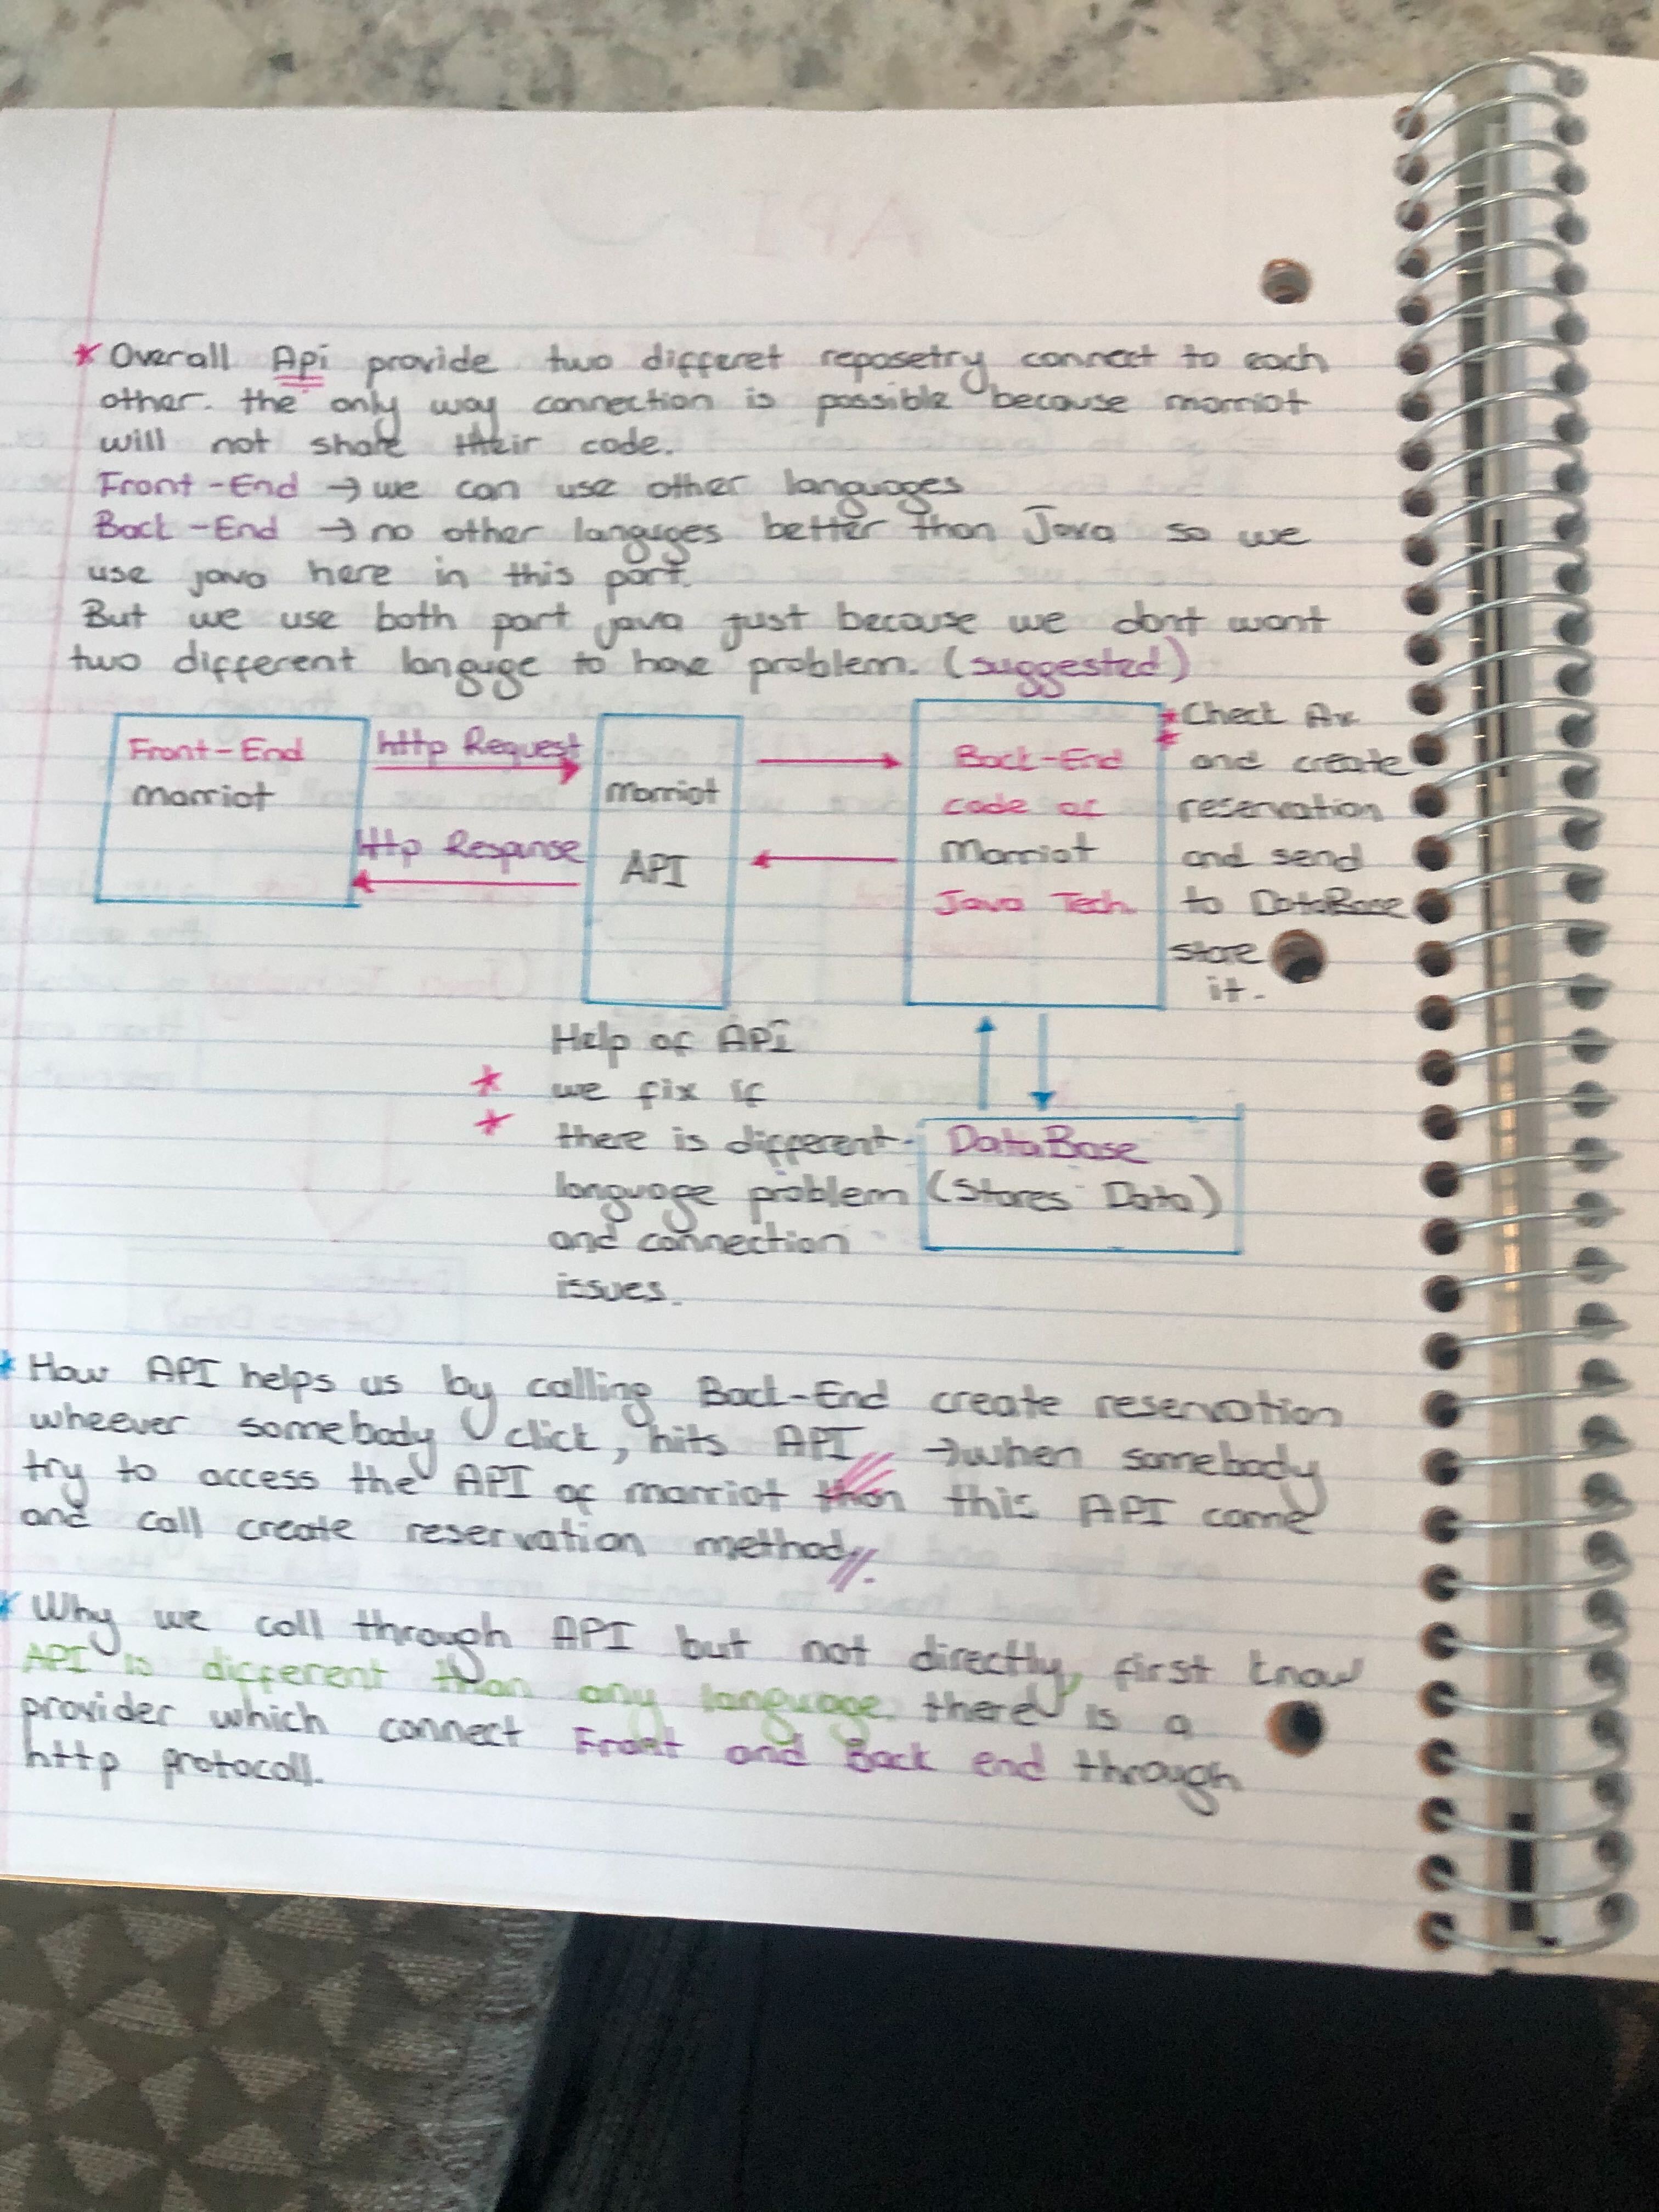 * Overall Api provide two differet reposetry connect to each
other. the only way connection is possible because marriot
will not share their code.
Front-End → we can use other languages
Back-End → no other languges better than Java so we
use java here in this part.
But we use both part java just because we dont want
two different languge to have problem. (suggested)
Front-End
marriot
http Request
Http Response
marriot
API
Back-End
code of
Marriot
Java Tech.
* Check Av.
* and create
reservation
and send
to DataBase
store
it.
Help of API
* we fix if
* there is different
language problem
and connection
issues.
DataBase
(Stores Data)
* How API helps us by calling Back-End create reservation
wheever somebody click, hits API → when somebody
try to access the API of marriot than this API come
and call create reservation method.
* Why we call through API but not directly, first know
API is different than any language. there is a
provider which connect Front and Back end through
http protocoll.